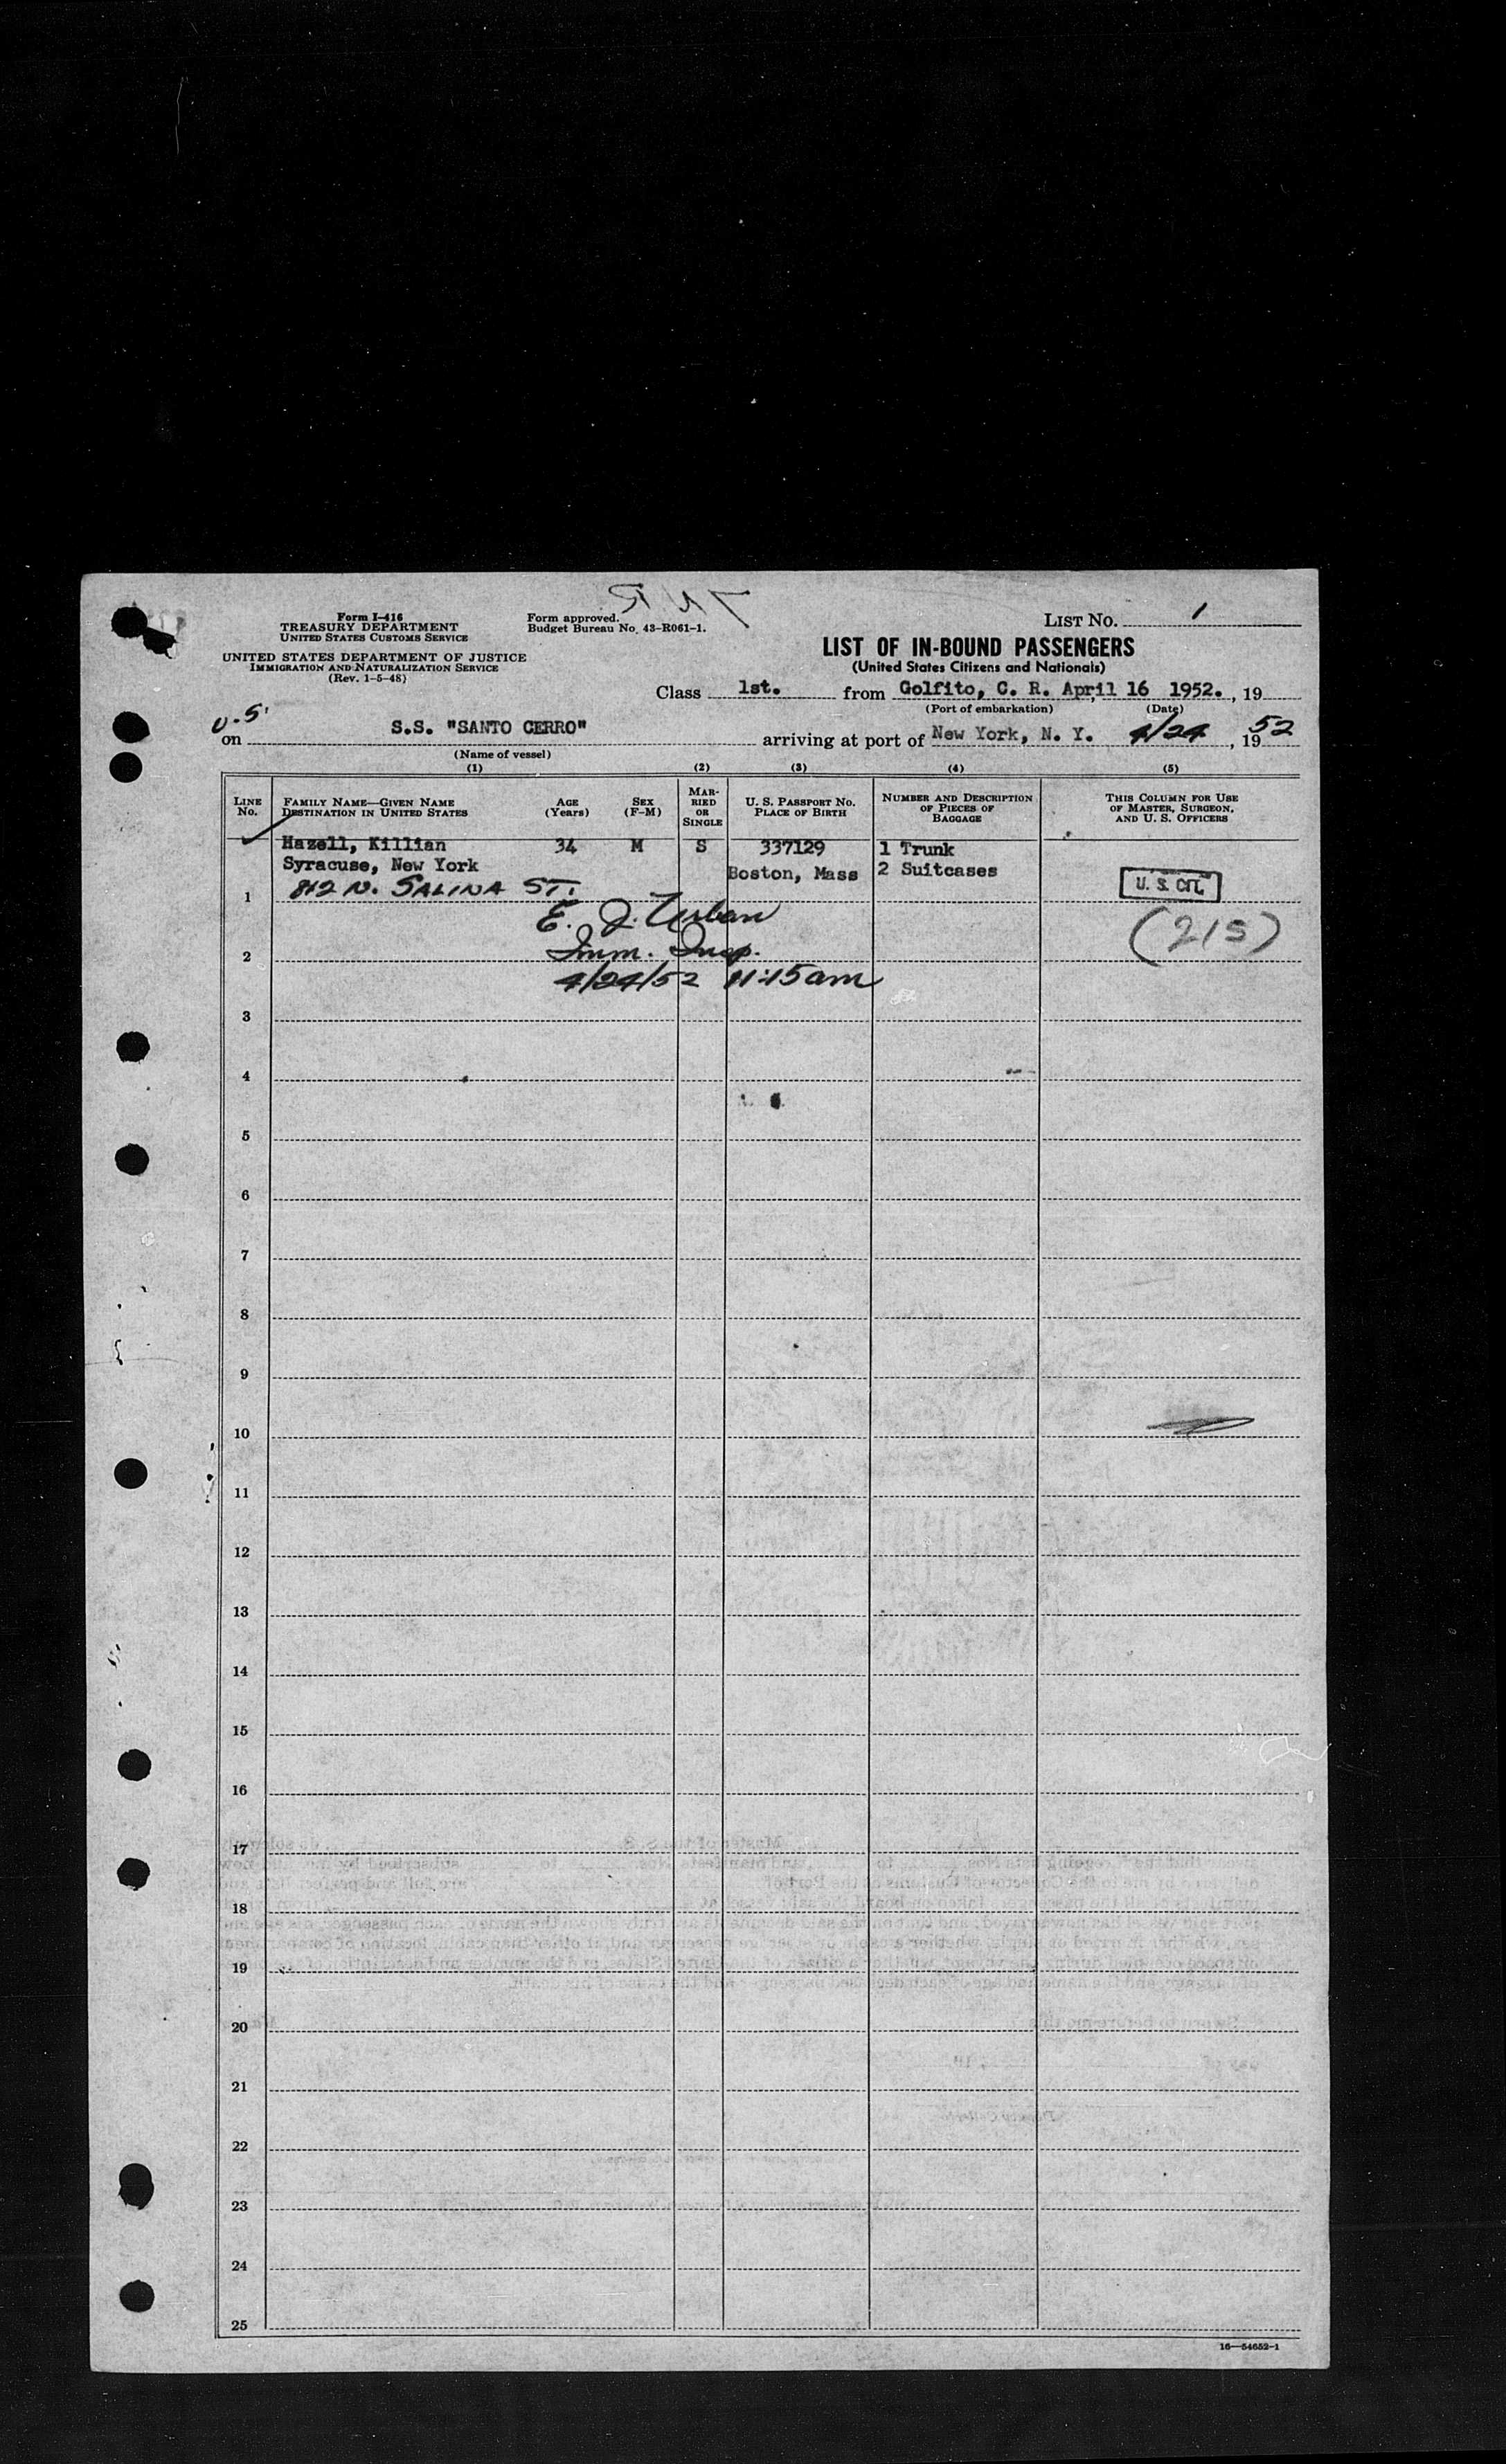 Form I-416
TREASURY DEPARTMENT
UNITED STATES CUSTOMS SERVICE
UNITED STATES DEPARTMENT OF JUSTICE
IMMIGRATION AND NATURALIZATION SERVICE
(Rev. 1-5-48)
Form approved.
Budget Bureau No. 43-R061-1.
LIST No. 1
LIST OF IN-BOUND PASSENGERS
(United States Citizens and Nationals)
Class 1st. from Golfito, C. R. April 16 1952. , 19
(Port of embarkation) (Date)
U.S.
on S.S. "SANTO CERRO" arriving at port of New York, N. Y. 4/24 , 1952
(Name of vessel)
(1) (2) (3) (4) (5)
LINE No. FAMILY NAME—GIVEN NAME DESTINATION IN UNITED STATES AGE (Years) SEX (F-M) MARRIED OR SINGLE U. S. PASSPORT No. PLACE OF BIRTH NUMBER AND DESCRIPTION OF PIECES OF BAGGAGE THIS COLUMN FOR USE OF MASTER, SURGEON, AND U. S. OFFICERS
Hazell, Killian 34 M S 337129 1 Trunk
Syracuse, New York Boston, Mass 2 Suitcases
1 812 N. SALINA ST. U. S. CIT.
E. J. Urban (215)
2 Imm. Insp.
4/24/52 11:15am
3
4
5
6
7
8
9
10
11
12
13
14
15
16
17
18
19
20
21
22
23
24
25
16—54652-1